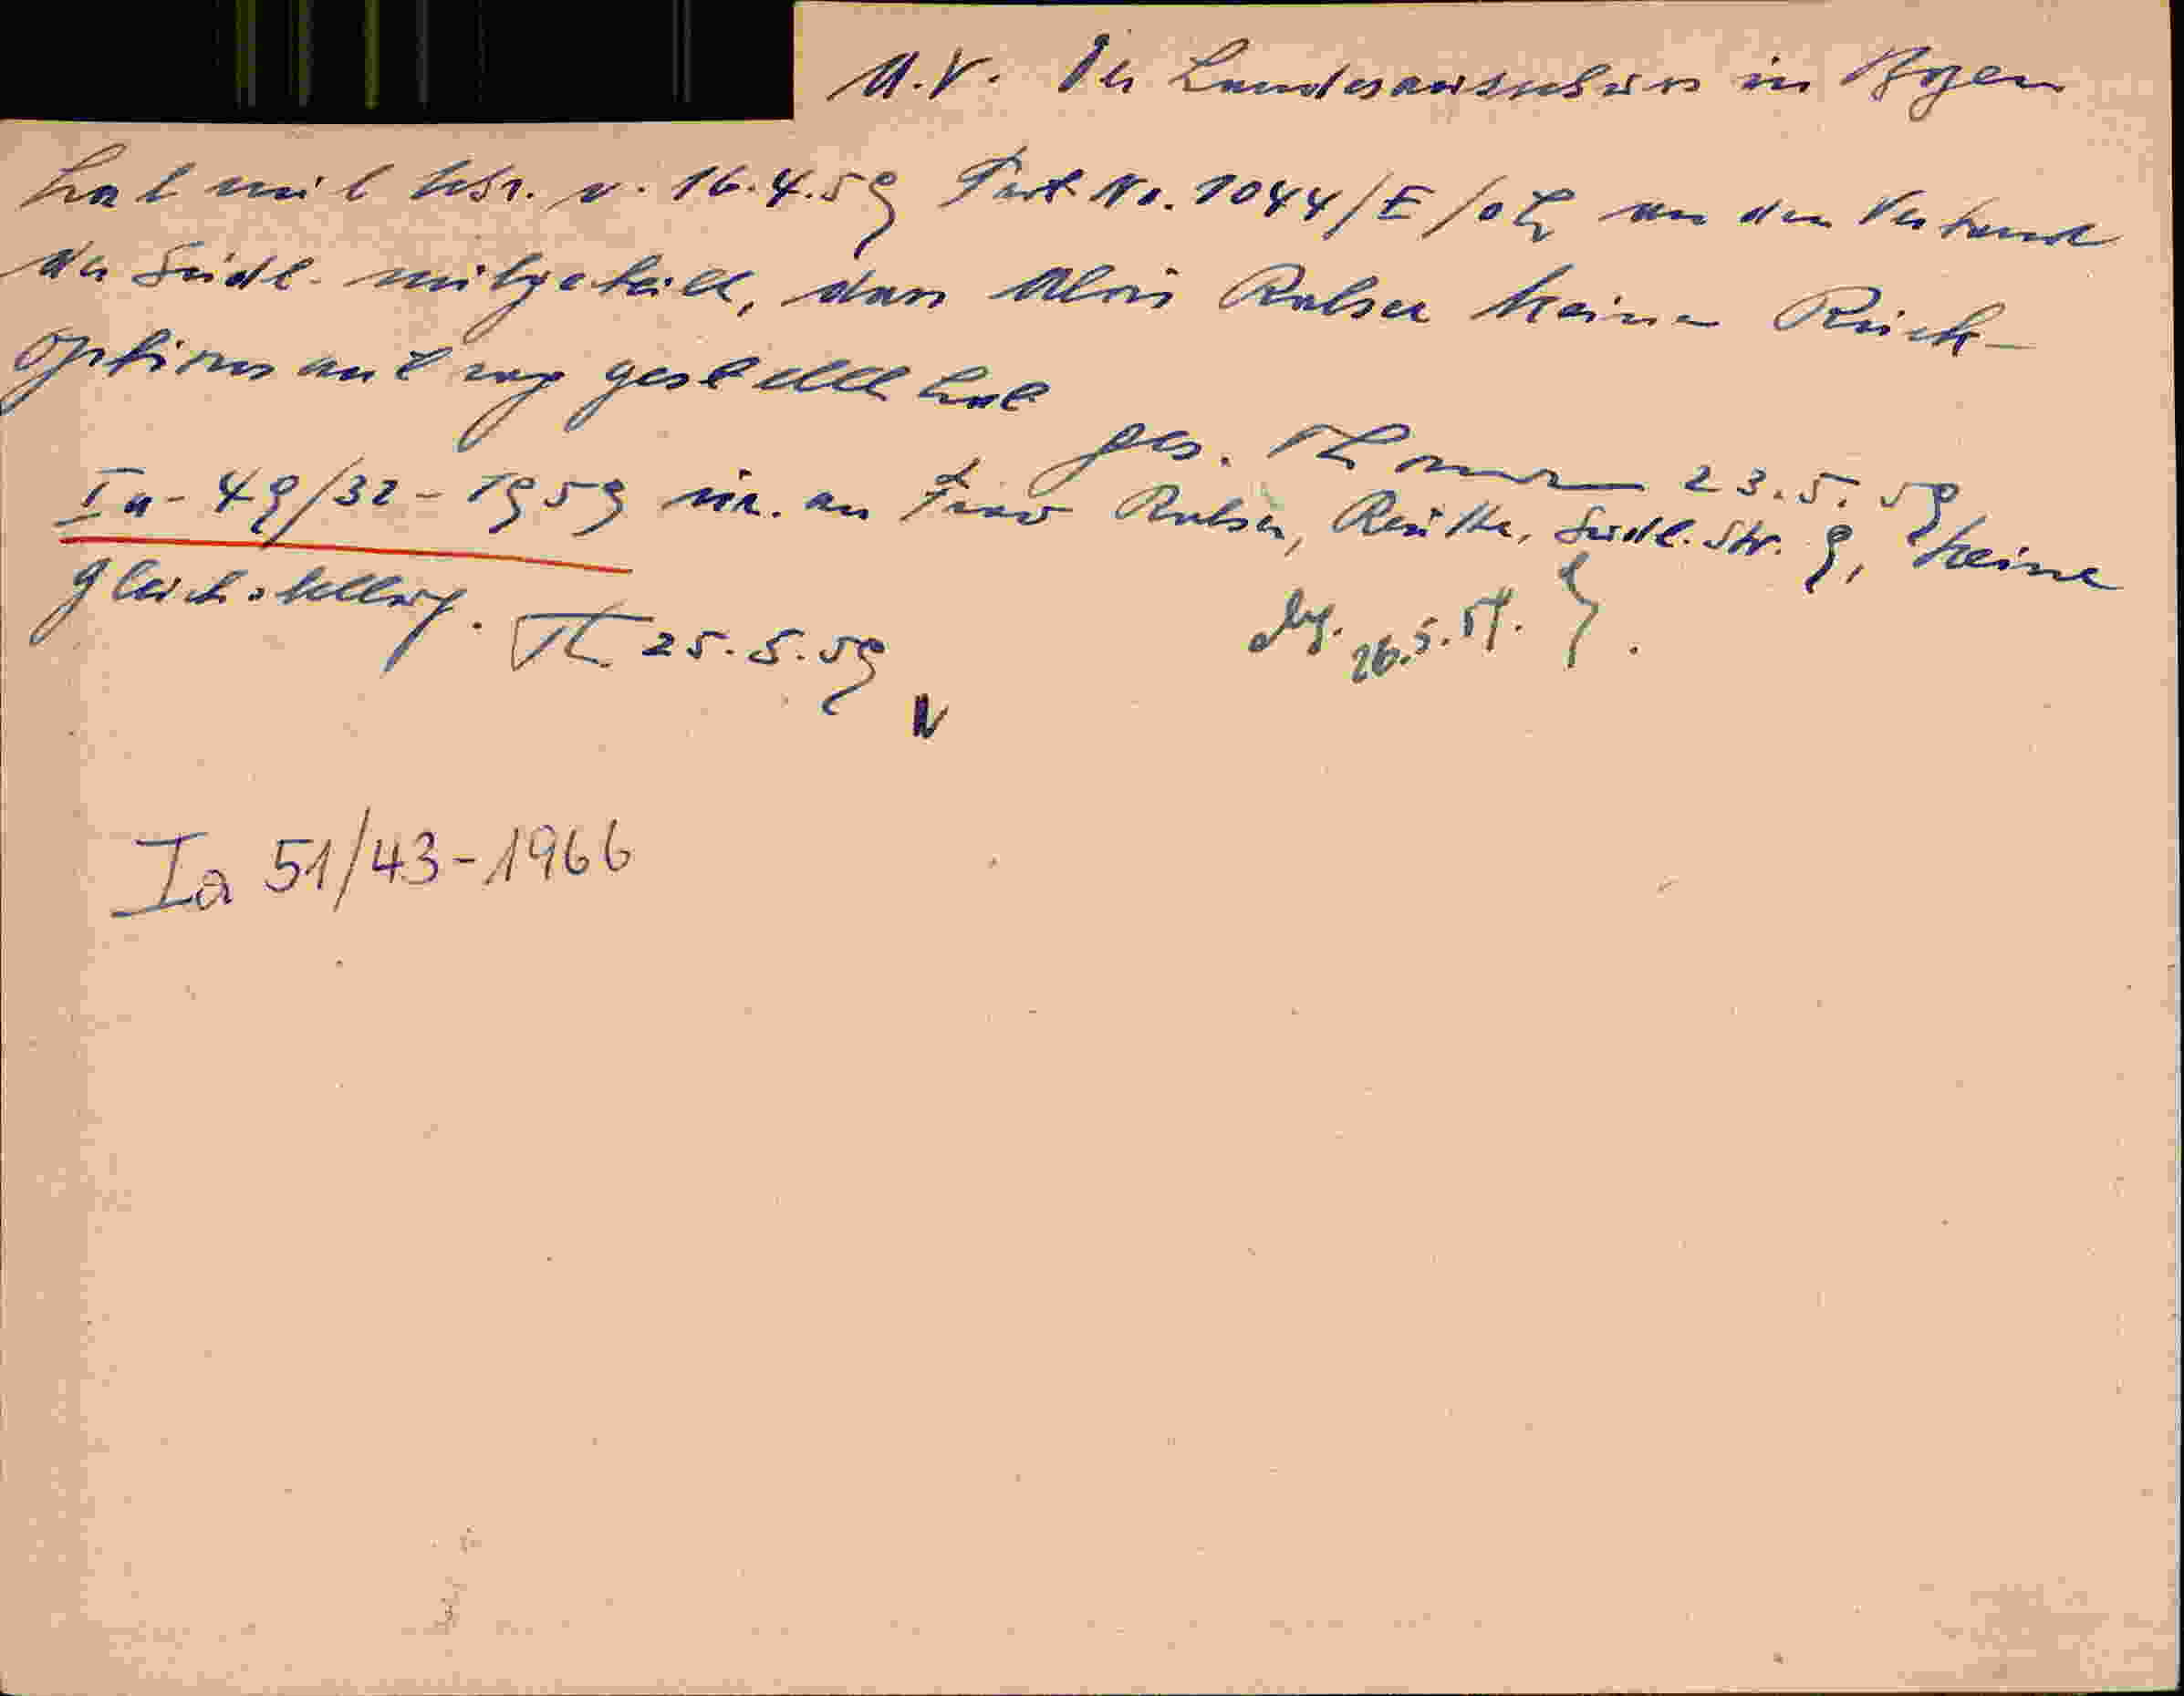 A.V. Der Landesausschuss in Bozen
hat mit Schr. v. 16.4.59 Prot. Nr. 1044/E/oL an den Verband
der Südt. mitgeteilt, dass Alois Rabser keinen Rück-
optionsantrag gestellt hat
ges. 23.5.59
Ia-49/32-1959 an Frau Rabser, Reutte, Südt. Str. 9, keine
Gleichstellung. Th 25.5.59
26.5.59.
Ia 51/43-1966